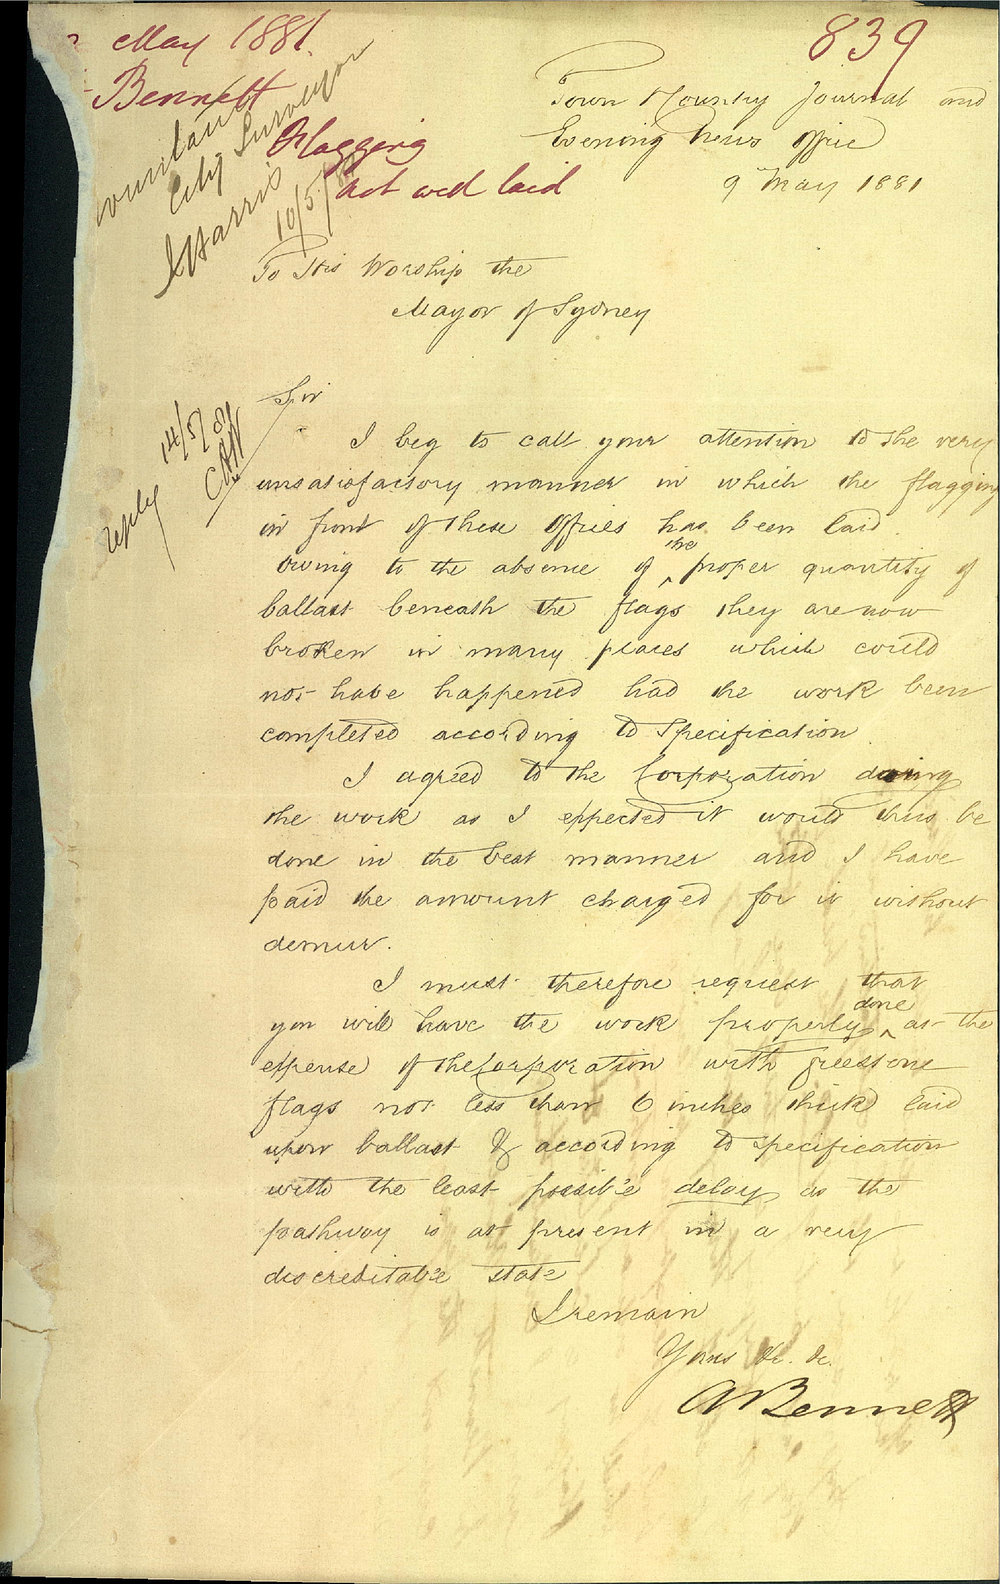 May 1881.
839
Bennett
Flagging
not well laid
City Surveyor
J Harris
10/5/81
Town & Country Journal and
Evening News Office
9 May 1881
To His Worship the
Mayor of Sydney
reply
14/5/81
Sir
I beg to call your attention to the very
unsatisfactory manner in which the flagging
in front of these offices has been laid
owing to the absence of the proper quantity of
ballast beneath the flags they are now
broken in many places which could
not have happened had the work been
completed according to Specification.
I agreed to the Corporation doing
the work as I expected it would thus be
done in the best manner and I have
paid the amount charged for it without
demur.
I must therefore request that
you will have the work properly done at the
expense of the Corporation with freestone
flags not less than 6 inches thick laid
upon ballast & according to specification
with the least possible delay as the
pathway is at present in a very
discreditable state
I remain
Yours &c. &c.
A Bennett